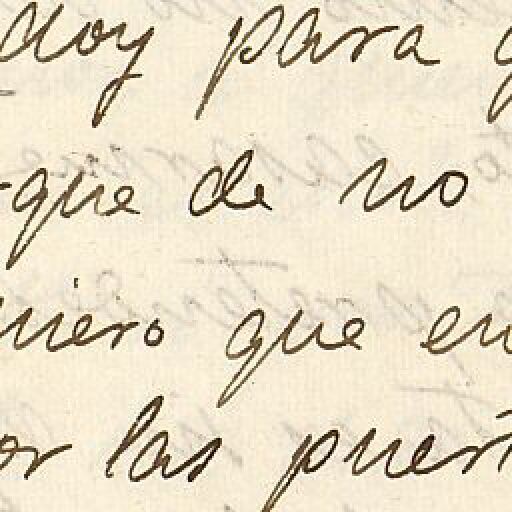 doy para
que de no
uiero que en
or las puer